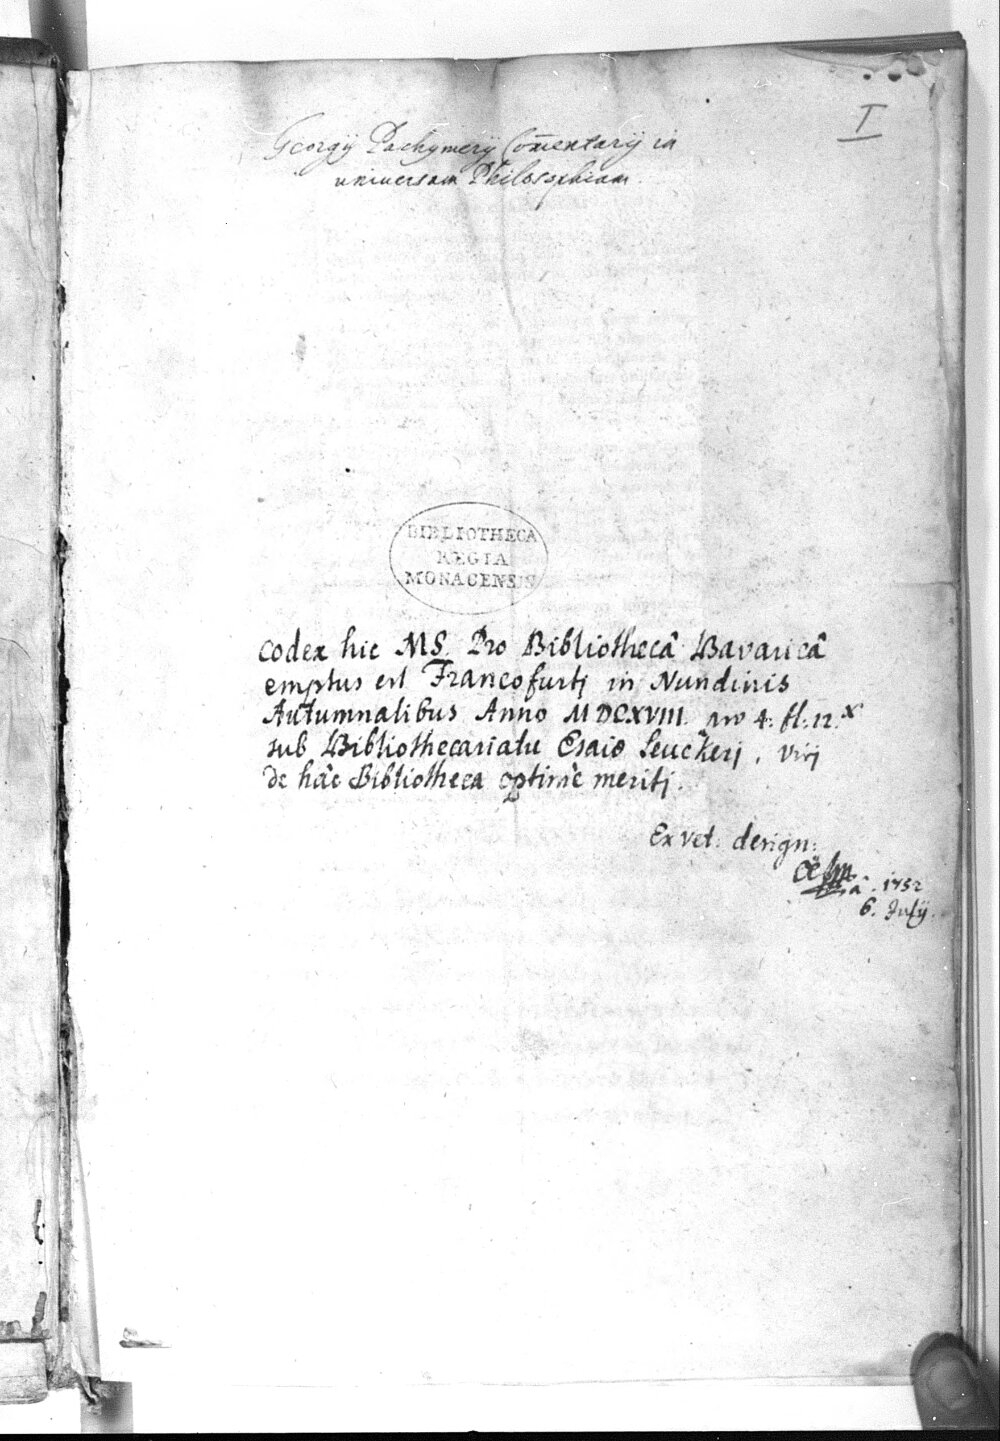 I
Georgij Pachymerij Com̄entarij in
universam Philosophiam.
BIBLIOTHECA
REGIA
MONACENSIS
Codex hic MS. Pro Bibliothecâ Bavaricâ
emptus est Francofurtj in Nundinis
Autumnalibus Anno MDCXVIII. pro 4: fl: 12. x
sub Bibliothecariatu Esaiæ Leuckerj, virj
de hâc Bibliotheca optimè meritj.
Ex vet: design:
1752
6. Julij.